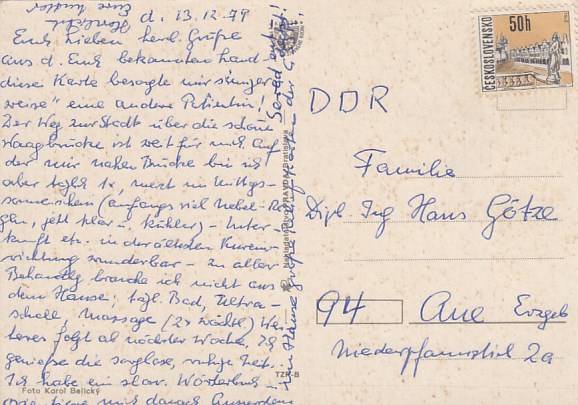 d. 13.12.79
Euch Lieben herzl. Grüße
aus d. Euch bekannten
diese Karte besorgte mir
weise" eine andere Patientin!
Der Weg zur Stadt über die schöne
Waagbrücke ist weit für mich. Auf
der mir nahen Brücke bin ich
aber tägl. 1x, meist im Mittags-
sonnenschein (anfangs viel Nebel-Re-
gen, jetzt klar u. kühler) – Unter-
kunft etc. in der ältesten Kurein-
richtung wunderbar – zu aller
Behandlg brauche ich nicht aus
dem Hause; tägl. Bad, Ultra-
schall, Massage (2x wöchtl) Wei-
teres folgt ab nächster Woche. Ich
genieße die sorglose, ruhige Zeit.
Ich habe ein slov. Wörterbuch
Foto Karol Belický
TZR-B
Bratislava
ČESKOSLOVENSKO
50h
DDR
Familie
Dipl. Ing Hans Götze
94 Aue Erzgeb
Niederpfannstiel 2a